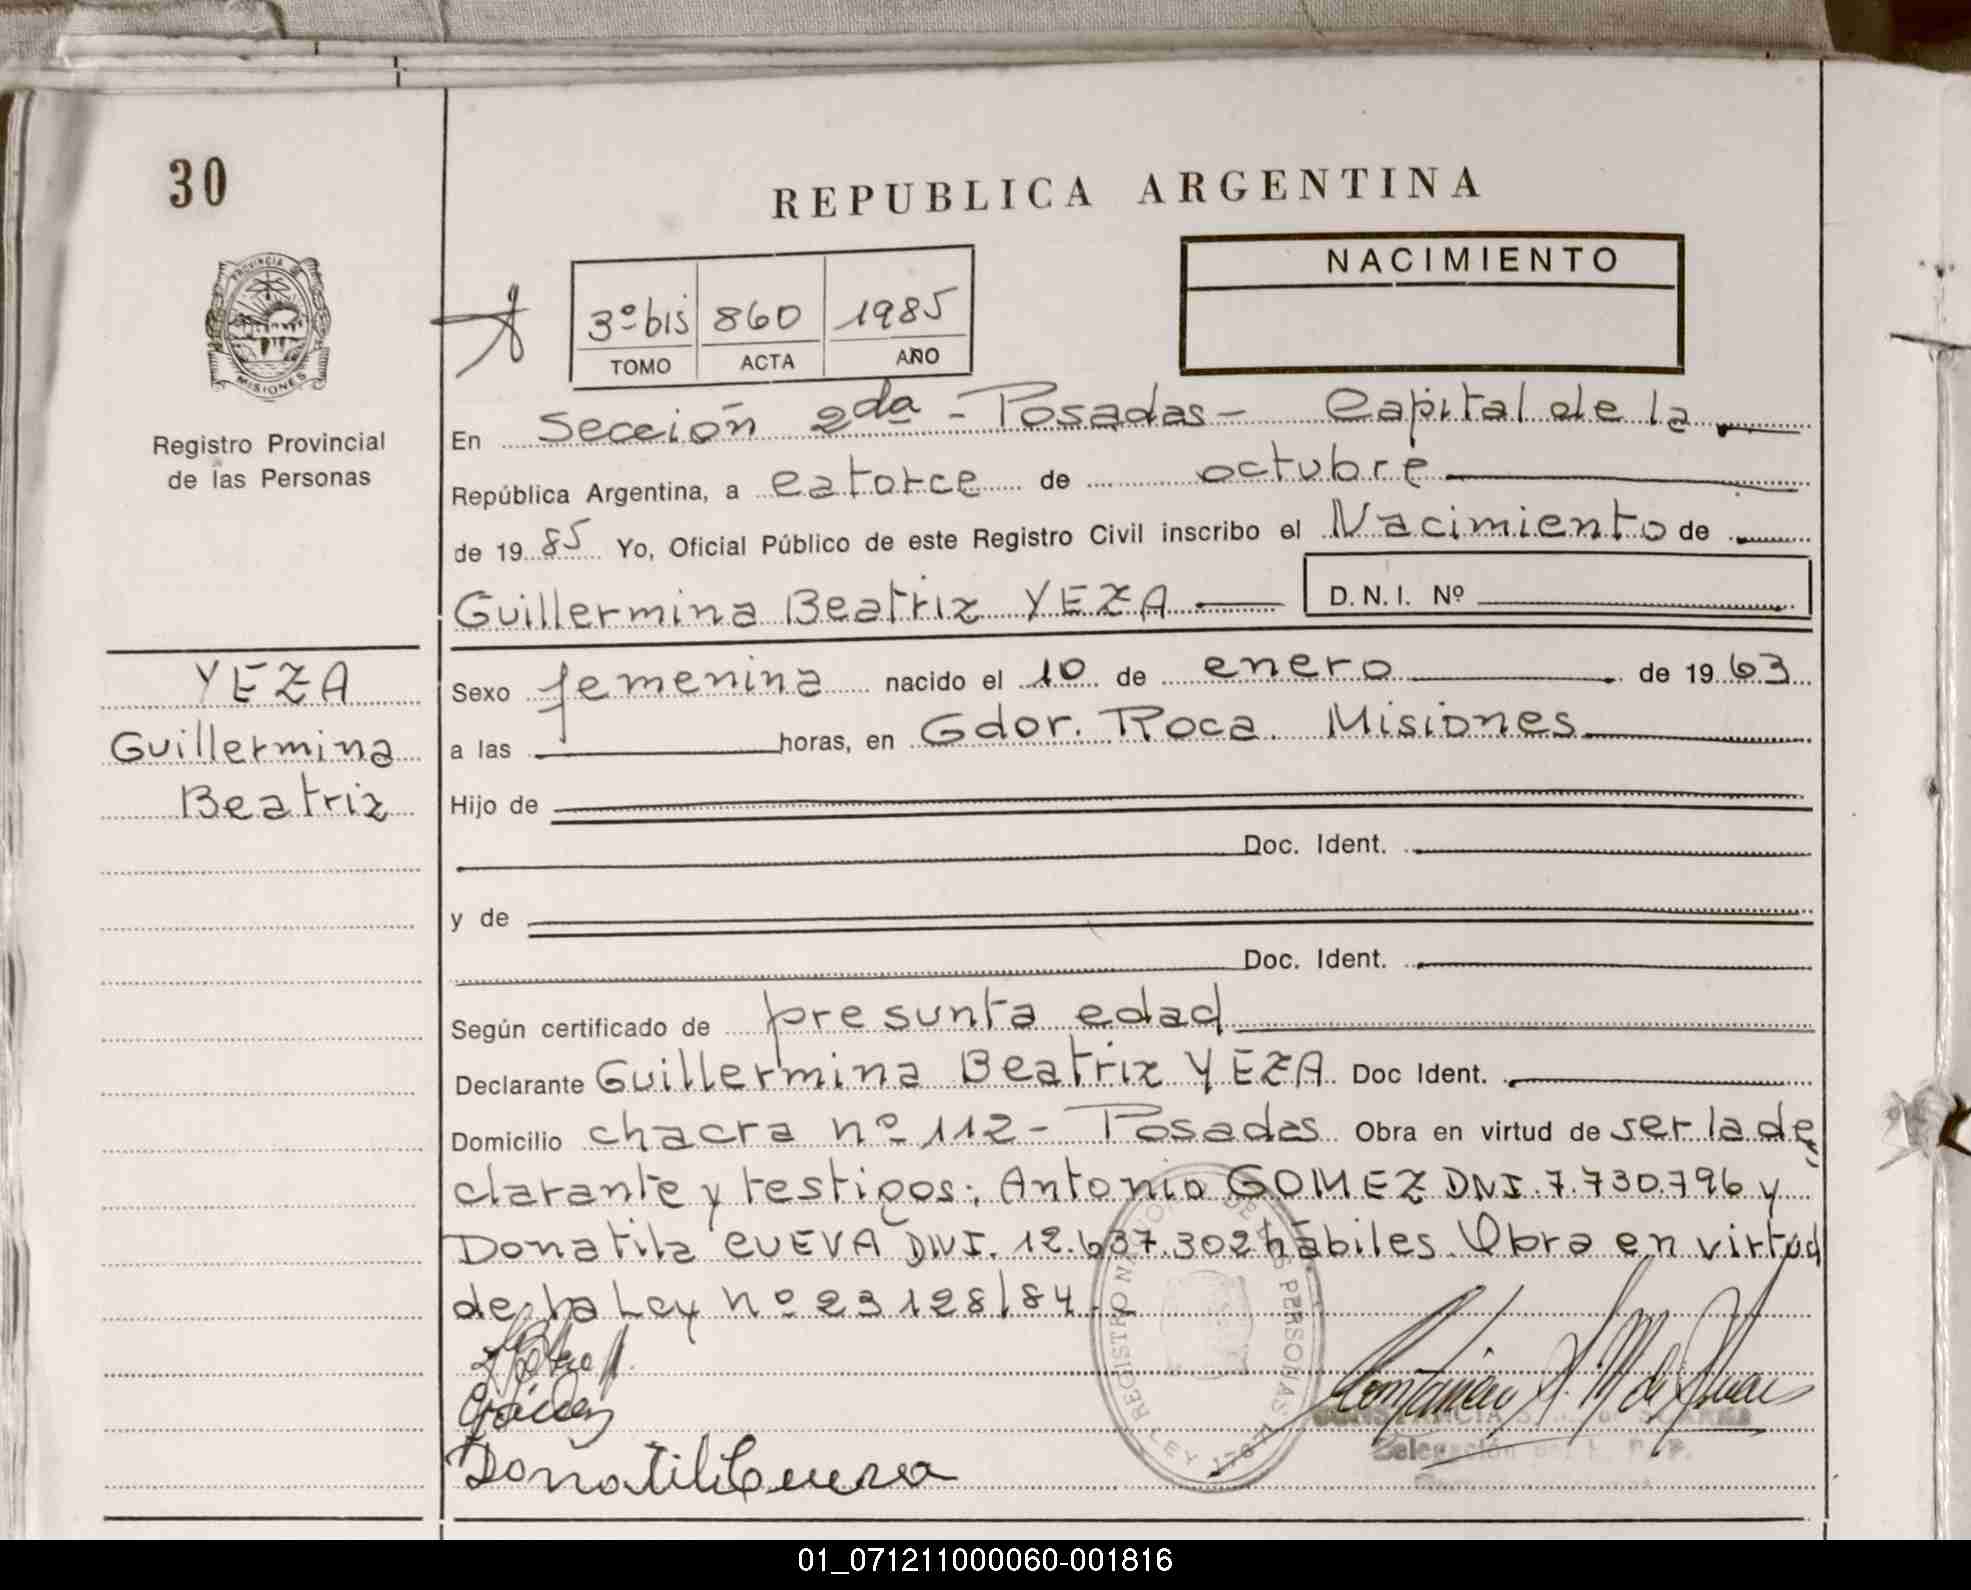 30
REPUBLICA ARGENTINA
PROVINCIA DE
MISIONES
Registro Provincial
de las Personas
3º bis 860 1985
TOMO ACTA AÑO
NACIMIENTO
En Sección 2da - Posadas - Capital de la
República Argentina, a catorce de octubre
de 1985 Yo, Oficial Público de este Registro Civil inscribo el Nacimiento de
Guillermina Beatriz YEZA D.N.I. Nº
YEZA
Guillermina
Beatriz
Sexo femenina nacido el 10 de enero de 1963
a las horas, en Gdor. Roca. Misiones
Hijo de
Doc. Ident.
y de
Doc. Ident.
Según certificado de presunta edad
Declarante Guillermina Beatriz YEZA Doc Ident.
Domicilio chacra nº 112 - Posadas Obra en virtud de ser la de
clarante y testigos: Antonio GOMEZ DNI. 7.730.796 y
Donatila CUEVA DNI. 12.637.302 hábiles. Obra en virtud
de la Ley nº 23128/84.
Donatil Cueva
REGISTRO NACIONAL DE LAS PERSONAS
LEY
Delegación
01_071211000060-001816